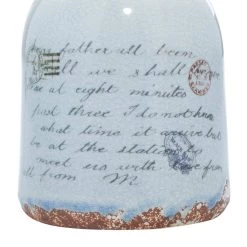 father all been
all we shall
at eight minutes
past three I do not know
what time it arrive but
be at the station to
meet us with love from
all from M